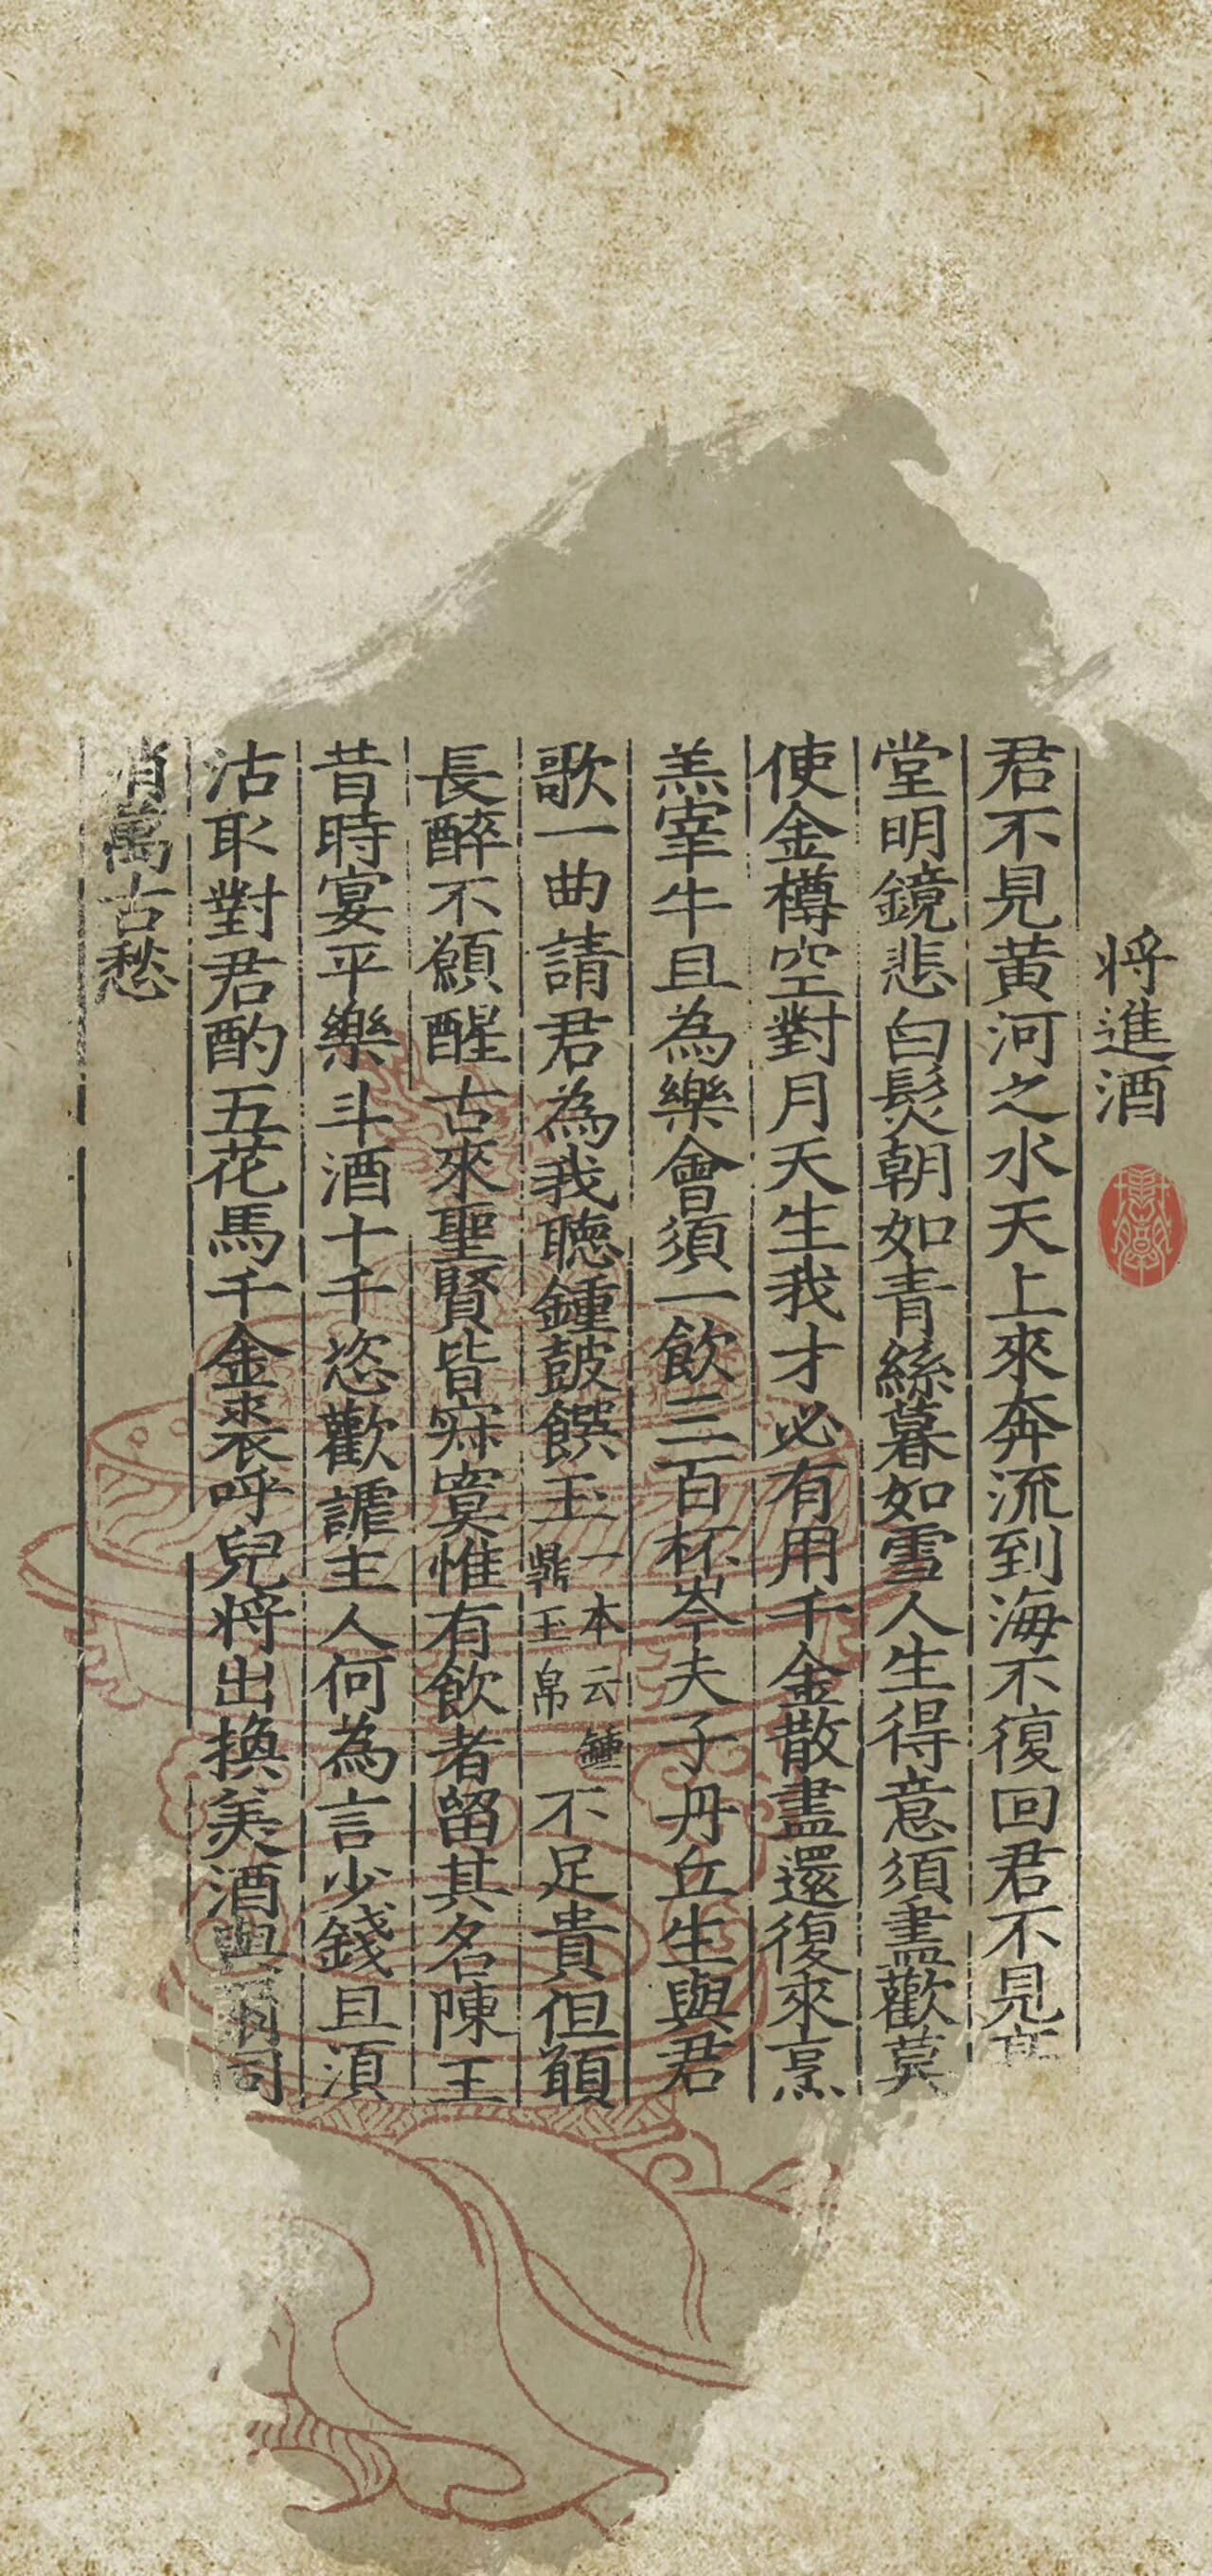 将進酒
君不見黄河之水天上來奔流到海不復回君不見高
堂明鏡悲白髮朝如青絲暮如雪人生得意須盡歡莫
使金樽空對月天生我才必有用千金散盡還復來烹
羔宰牛且為樂會須一飲三百杯岑夫子丹丘生與君
歌一曲請君為我聽鍾鼓饌玉一本云鍾鼎玉帛不足貴但願
長醉不願醒古來聖賢皆寂寞惟有飲者留其名陳王
昔時宴平樂斗酒十千恣歡謔主人何為言少錢且須
沽取對君酌五花馬千金裘呼兒将出換美酒與爾同
消萬古愁